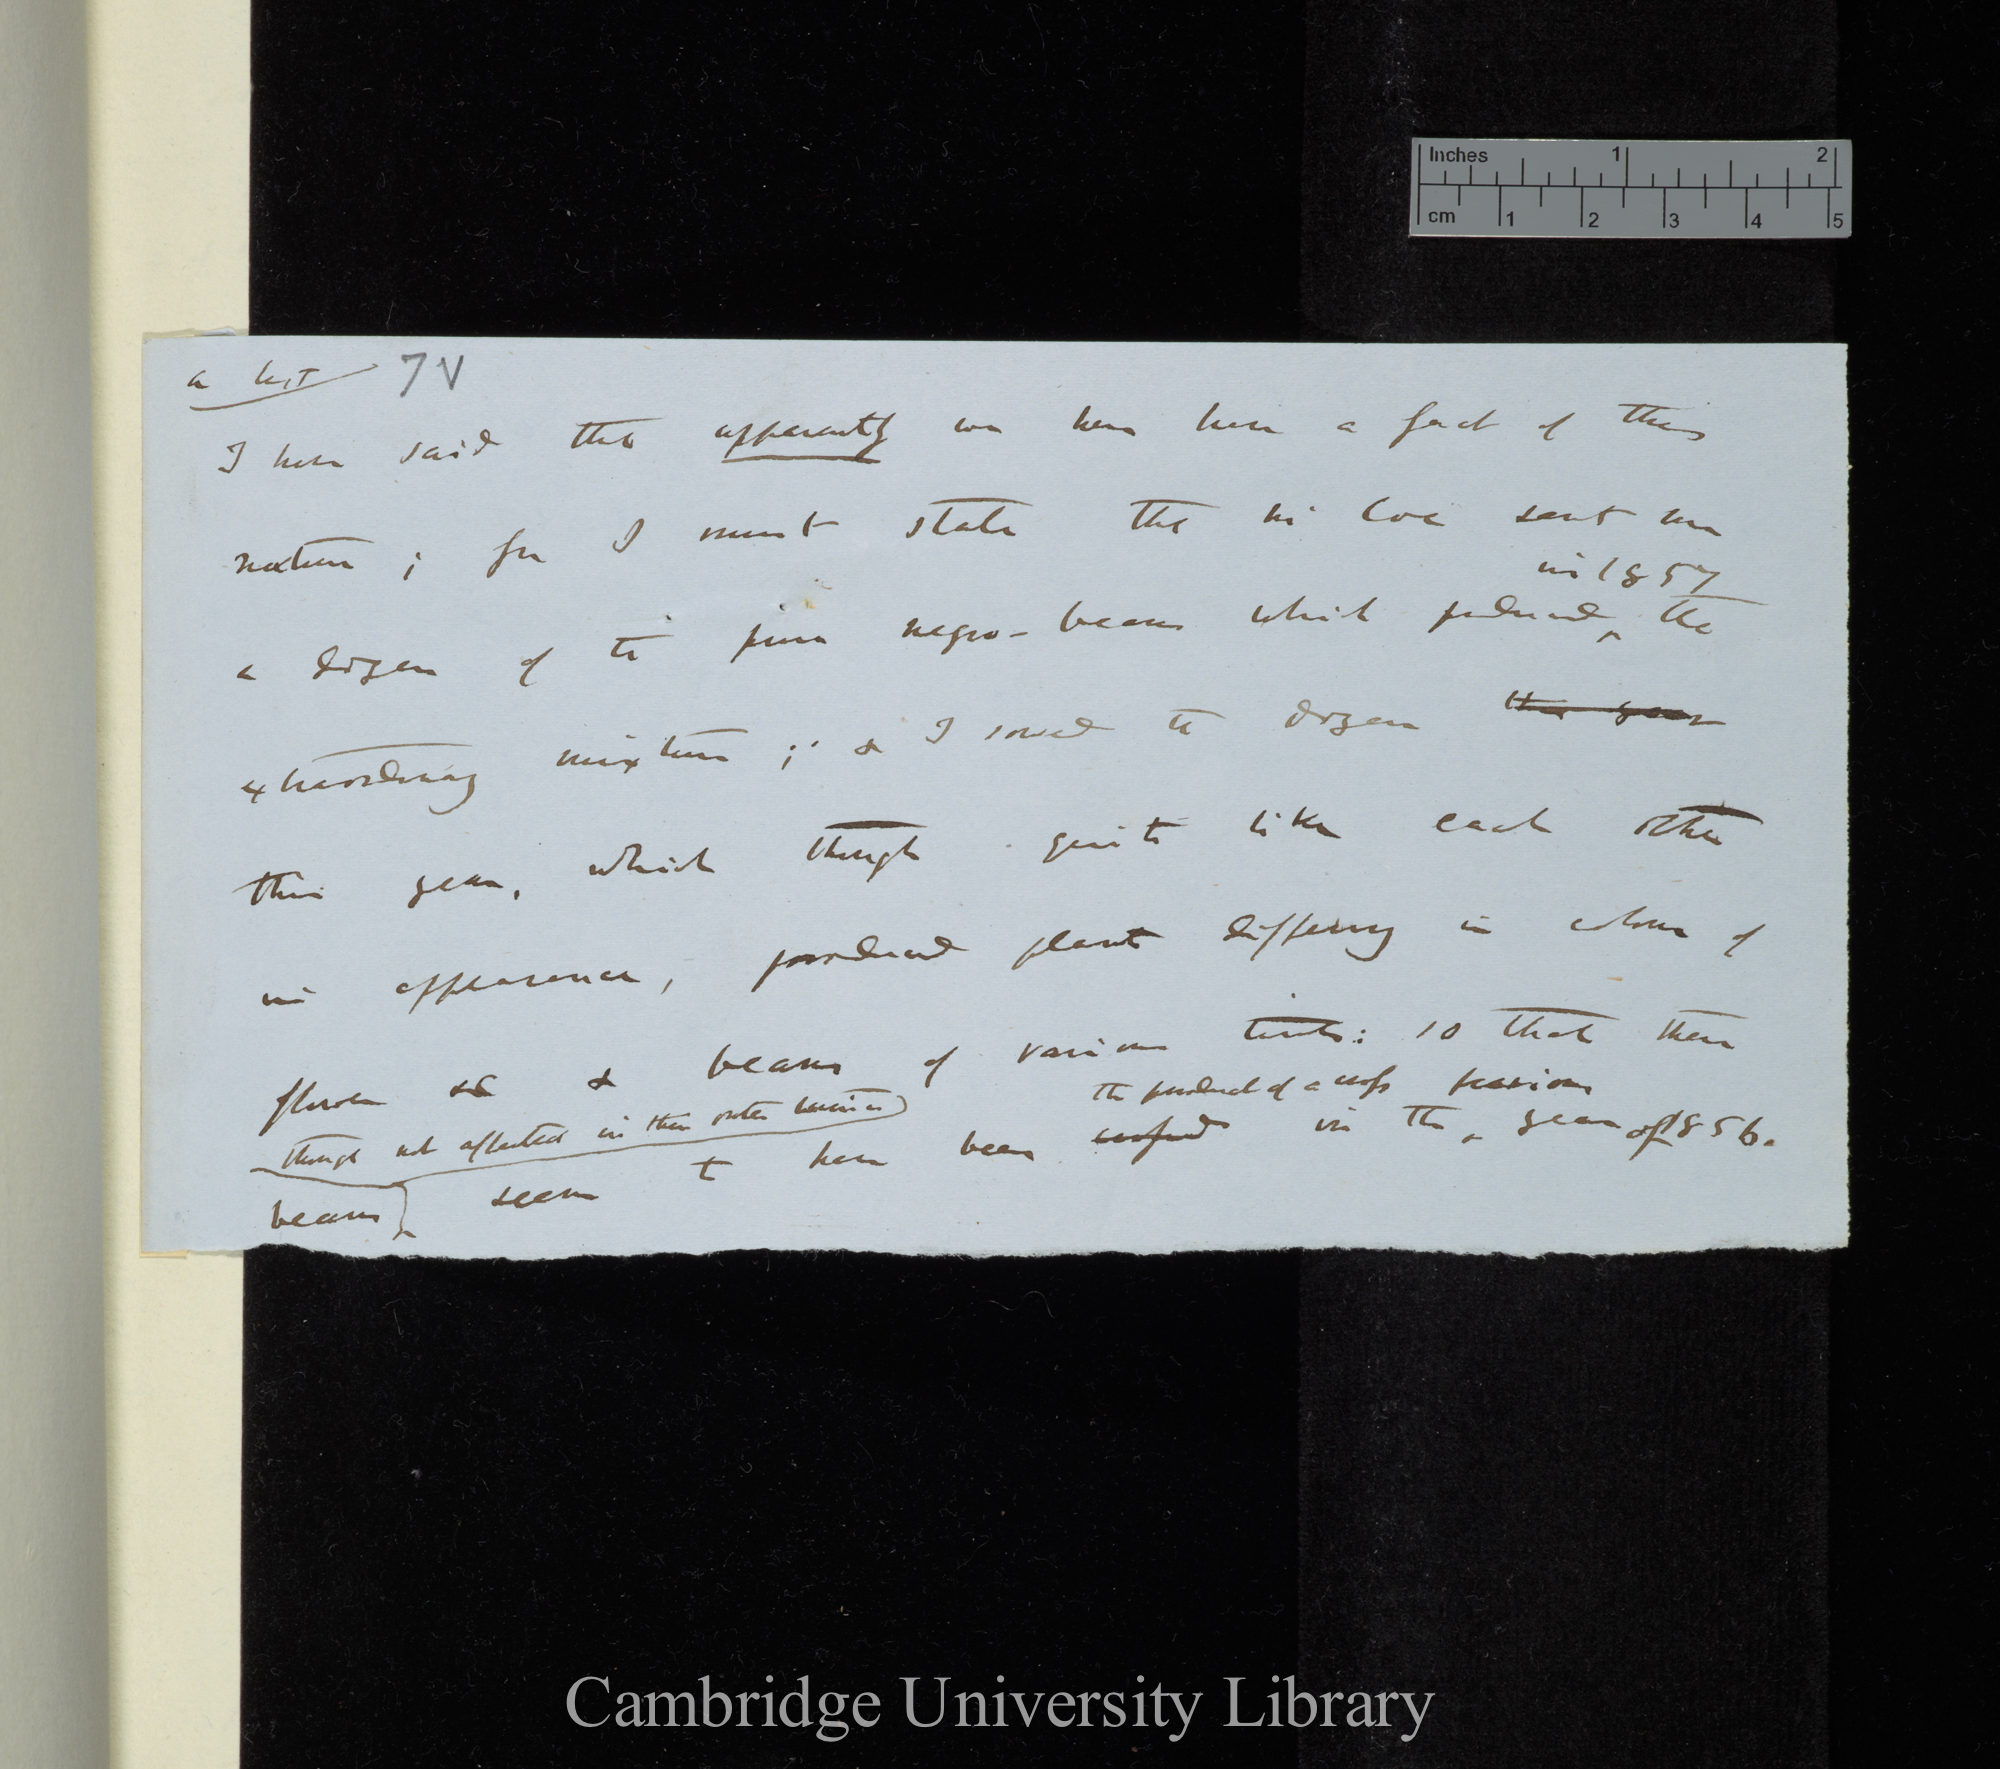 Inches 1 2
cm 1 2 3 4 5
a 7V
I have said that apparently we have here a fact of this
nature; for I must state that Mr Coe sent me
in 1857
a dozen of the pure negro-beans which produced the
extraordinary mixture; & I sowed the dozen this year
this year, which though quite like each other
in appearance, produced plants differing in colour of
flower & beans of various tints: so that these
the product of a cross previous
though not affected in their outer
beans seem to have been crossed in the year of 1856.
Cambridge University Library